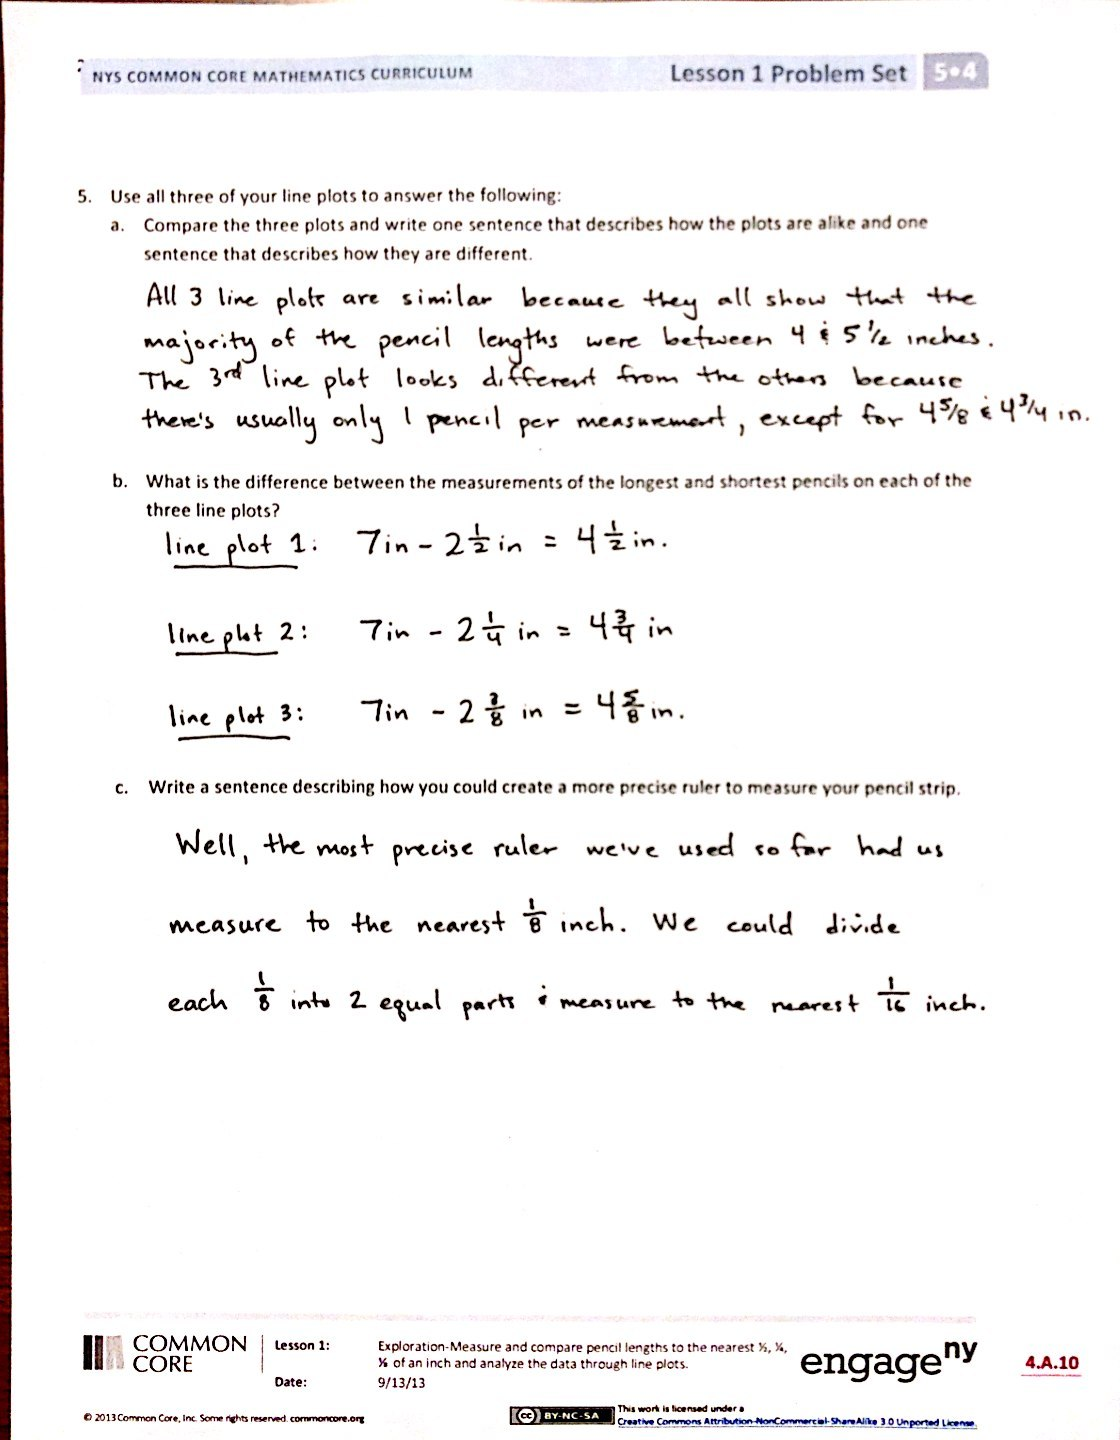 NYS COMMON CORE MATHEMATICS CURRICULUM Lesson 1 Problem Set 5•4
5. Use all three of your line plots to answer the following:
a. Compare the three plots and write one sentence that describes how the plots are alike and one
sentence that describes how they are different.
All 3 line plots are similar because they all show that the
majority of the pencil lengths were between 4 & 5 1/2 inches.
The 3rd line plot looks different from the others because
there's usually only 1 pencil per measurement, except for 4 5/8 & 4 3/4 in.
b. What is the difference between the measurements of the longest and shortest pencils on each of the
three line plots?
line plot 1: 7in - 2 1/2 in = 4 1/2 in.
line plot 2: 7in - 2 1/4 in = 4 3/4 in
line plot 3: 7in - 2 3/8 in = 4 5/8 in.
c. Write a sentence describing how you could create a more precise ruler to measure your pencil strip.
Well, the most precise ruler we've used so far had us
measure to the nearest 1/8 inch. We could divide
each 1/8 into 2 equal parts & measure to the nearest 1/16 inch.
COMMON CORE
Lesson 1: Exploration-Measure and compare pencil lengths to the nearest ½, ¼,
⅛ of an inch and analyze the data through line plots.
Date: 9/13/13
engage ny
4.A.10
© 2013 Common Core, Inc. Some rights reserved. commoncore.org
cc BY-NC-SA
This work is licensed under a
Creative Commons Attribution-NonCommercial-ShareAlike 3.0 Unported License.